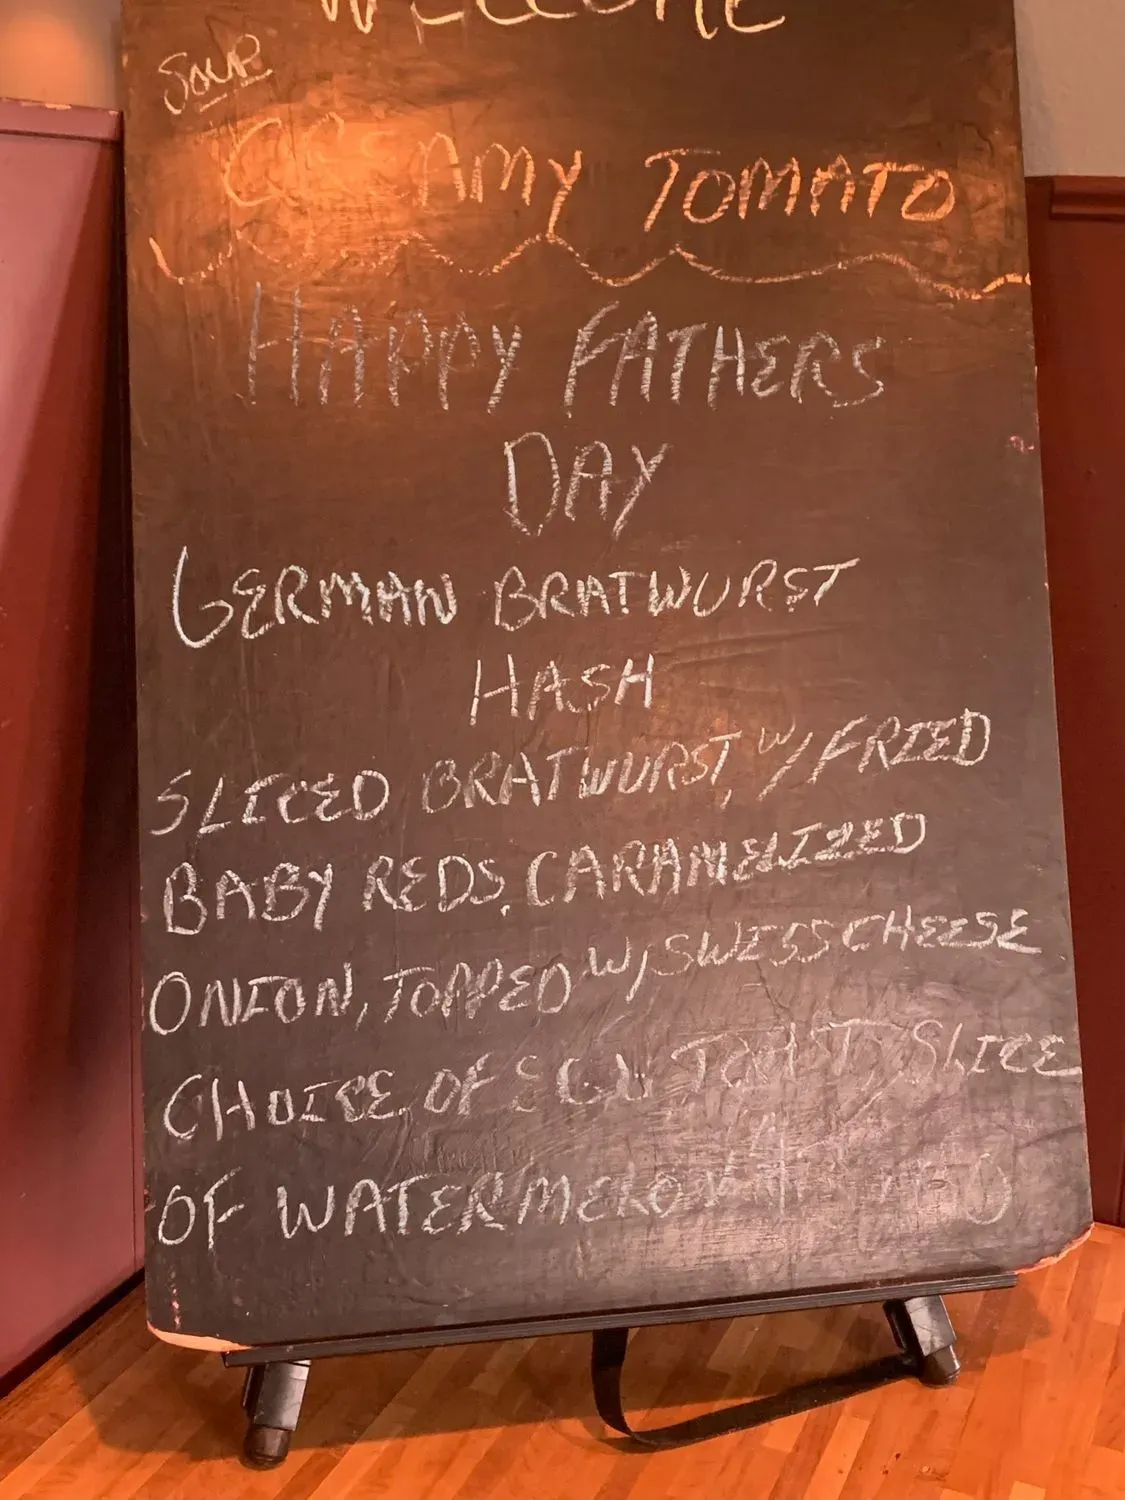 WELCOME
SOUP
CREAMY TOMATO
HAPPY FATHERS
DAY
GERMAN BRATWURST
HASH
SLICED BRATWURST, W/ FRIED
BABY REDS, CARAMELIZED
ONION, TOPPED W/ SWISS CHEESE
CHOICE OF EGG TOAST, SLICE
OF WATERMELON